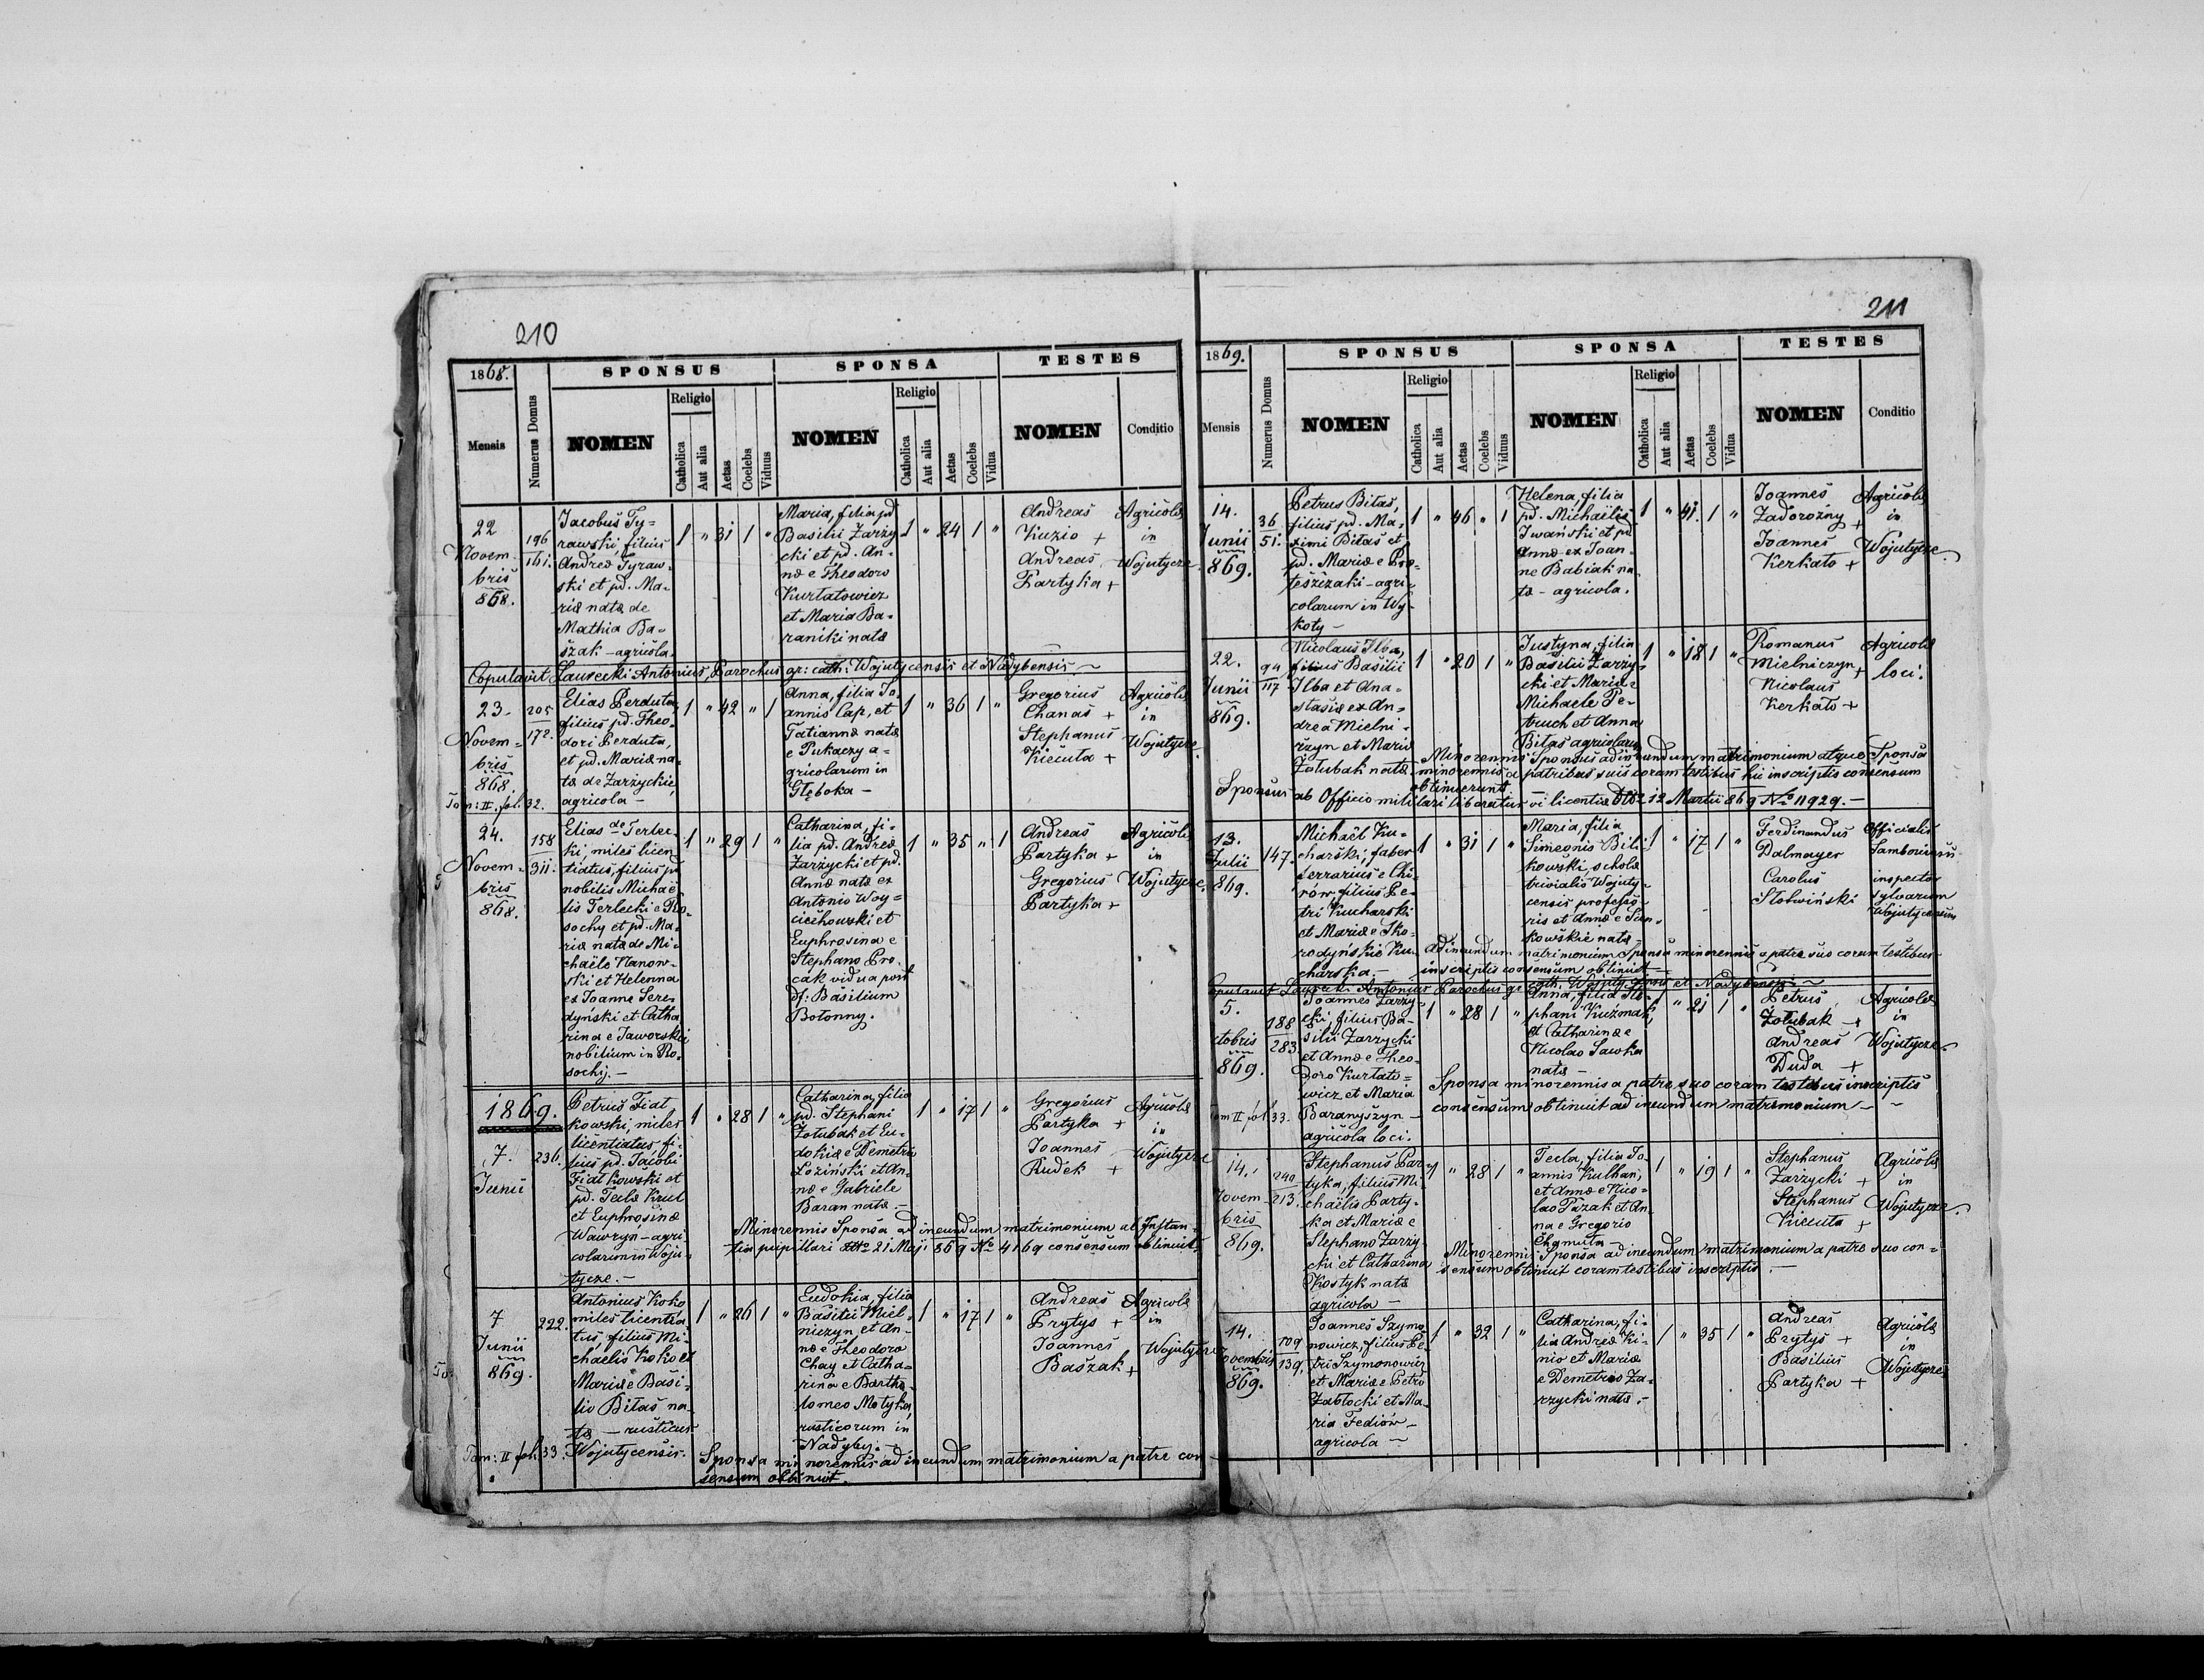 210
1868.
SPONSUS
SPONSA
TESTES
Mensis
Numerus Domus
NOMEN
Religio
Catholica
Aut alia
Aetas
Coelebs
Viduus
NOMEN
Religio
Catholica
Aut alia
Aetas
Coelebs
Vidua
NOMEN
Conditio
22
Novem-
bris
868.
196
161.
Jacobus Ty-
rawski, filius
Andreæ Tyraw-
ski et pd. Ma-
riæ natæ de
Mathia Ba-
szak - agricola.
1 " 31 1 "
Maria, filia pd
Basilii Zarzy
cki et pd. An-
næ e Theodoro
Kurtatowicz
et Maria Ba-
raniki nata
1 " 24 1 "
Andreas
Kuzio +
Andreas
Partyka +
Agricolæ
in
Wojutycze
Copulavit Laurecki Antonius, Parochus gr: cath: Wojutycensis et Nadybensis ~
23.
Novem-
bris
868.
Tom: II. fol. 32.
205
172.
Elias Perduta,
filius pd. Theo-
dori Perduta,
et pd. Mariæ na-
tæ de Zarzyckie,
agricola -
1 " 42 " 1
Anna, filia Jo-
annis Cap, et
Tatiannæ natæ
e Pukaczy a-
gricolarum in
Głęboka -
1 " 36 1 "
Gregorius
Chanas +
Stephanus
Kiecuta +
Agricolæ
in
Wojutycze
24.
Novem-
bris
868.
158
311.
Elias de Terlec-
ki, miles licen
tiatus, filius pd
nobilis Michaë-
lis Terlecki e Ro-
sochy et pd. Ma-
riæ natæ de Mi-
chaële Nanow-
ski et Helenna
ex Joanne Sere-
dyński et Catha
rina e Jaworski
nobilium in Ro-
sochij. -
1 " 29 1 "
Catharina, fi-
lia pd. Andreæ
Zarzycki et pd.
Annæ natæ ex
Antonio Woy-
ciechowski et
Euphrosina e
Stephano Pro-
cak vidua post
df: Basilium
Botonny.
1 " 35 " 1
Andreas
Partyka +
Gregorius
Partyka +
Agricolæ
in
Wojutycze.
1869.
7.
Junii
236.
Petrus Fiat
kowski, miles
licentiatus, fi-
lius pd. Jacobi
Fiatkowski et
pd. Teclæ Krul
et Euphrosinæ
Wawryn - agri
colarum in Woju-
tycze. -
1 " 28 1 "
Catharina, filia
pd. Stephani
Zotubak et Eu-
dokiæ e Demetrio
Łoziński et An-
næ e Gabriele
Baran natæ. -
1 " 17 1 "
Gregorius
Partyka +
Joannes
Rudek +
Agricolæ
in
Wojutycze
Minorennis Sponsa ad ineundum matrimonium ab Instan-
tia pupillari ddto 21 Maji 869 No 4169 consensum obtinuit.
7
Junii
869.
222.
Antonius Koko
miles licentia-
tus, filius Mi-
chaelis Koko et
Mariæ e Basi-
lio Bitas na-
tæ - rusticus
Wojutycensis.
1 " 26 1 "
Eudokia, filia
Basilii Miel-
niczyn et An-
næ e Theodoro
Chay et Catha-
rina e Bartho-
lomeo Motyka,
rusticorum in
Nadyby. -
1 " 17 1 "
Andreas
Prytys +
Joannes
Baszak +
Agricolæ
in
Wojutycze
Tom: II fol. 33.
Sponsa minorennis ad ineundum matrimonium a patre con
sensum obtinuit.
211
1869.
SPONSUS
SPONSA
TESTES
Mensis
Numerus Domus
NOMEN
Religio
Catholica
Aut alia
Aetas
Coelebs
Viduus
NOMEN
Religio
Catholica
Aut alia
Aetas
Coelebs
Vidua
NOMEN
Conditio
14.
Junii
869.
36
51.
Petrus Bitas,
filius pd. Ma-
ximi Bitas et
pd. Mariæ e Pro-
teszczaki - agri-
colarum in Wy-
koty -
1 " 46 " 1
Helena, filia
pd. Michaëlis
Iwański et pd
Annæ ex Joan-
ne Babiak na
tæ - agricola.
1 " 41. 1 "
Joannes
Zadorożny +
Joannes
Kerkato +
Agricolæ
in
Wojutycze
22.
Junii
869.
94
117
Nicolaus Ilba,
filius Basilii
Ilba et Ana-
stasiæ ex An-
drea Mielni-
rzyn et Maria
Zotubak natæ
1 " 20 1 "
Justyna, filia
Basilii Zarzy-
cki et Mariæ e
Michaele Pe-
truch et Anna
Bitas agricolarum
1 " 18 1 "
Romanus
Mielniczyn +
Nicolaus
Kerkato +
Agricolæ
loci.
Minorennis Sponsus ad ineundum matrimonium atque Sponsa
minorennis a patribus suis coram testibus hic inscriptis consensum
obtinuerunt
Sponsus ab Officio militari liberatus vi licentiæ ddto 12 Martii 869 No 11929. -
13.
Julii
869.
147.
Michaël Ku-
charski, faber
serrarius e Chi-
rów, filius Pe-
tri Kucharski
et Mariæ e Sko-
rodyńskie Ku-
charska. -
1 " 31 1 "
Maria, filia
Simeonis Bili-
kowski, scholæ
trivialis Wojuty-
censis professo-
ris et Annæ e
kowskie natæ -
1 " 17 1 "
Ferdinandus
Dalmayer
Carolus
Słotwiński
Officialis
inspector
sylvarum
Wojutycensium
ad ineundum matrimonium Sponsa minorennis a patre suo coram testibus
inscriptis consensum obtinuit -
Copulavit Laurecki Antonius Parochus gr. cath. Wojutycensis et Nadybensis ~
5.
ctobris
869.
om II fol. 33.
188
283.
Joannes Zarzy-
cki, filius Ba-
silii Zarzycki
et Annæ e Theo-
doro Kurtato-
wicz et Maria
Baranyszyn -
agricola loci.
1 " 28 1 "
Anna, filia Ste-
phani Kuzmak,
et Catharinæ e
Nicolao Sawka
natæ -
1 " 21 1 "
Petrus
Zotubak +
Andreas
Duda +
Agricolæ
in
Wojutycze
Sponsa minorennis a patre suo coram testibus inscriptis
consensum obtinuit ad ineundum matrimonium -
14.
Novem-
bris
869.
240
213.
Stephanus Par
tyka, filius Mi-
chaëlis Party-
ka et Mariæ e
Stephano Zarzy-
cki et Catharina
Kostyk natæ
agricola -
1 " 28 1 "
Tecla, filia Jo-
annis Kulhan,
et Annæ e Nico-
lao Pazak et An-
na e Gregorio
Chamuta -
1 " 19 1 "
Stephanus
Zarzycki +
Stephanus
Kiecuta +
Agricolæ
in
Wojutycze.
Minorennis Sponsa ad ineundum matrimonium a patre suo con-
sensum obtinuit coram testibus inscriptis. -
14.
Novembris
869.
109
139.
Joannes Szymo
nowicz, filius Pe-
tri Szymonowicz
et Mariæ e Petro
Zabłocki et Ma-
ria Fediów -
agricola -
1 " 32 1 "
Catharina, fi-
lia Andreæ Ki-
nio et Mariæ
e Demetrio Za-
rzycki natæ. -
1 " 35 1 "
Andreas
Prytys +
Basilius
Partyka +
Agricolæ
in
Wojutycze